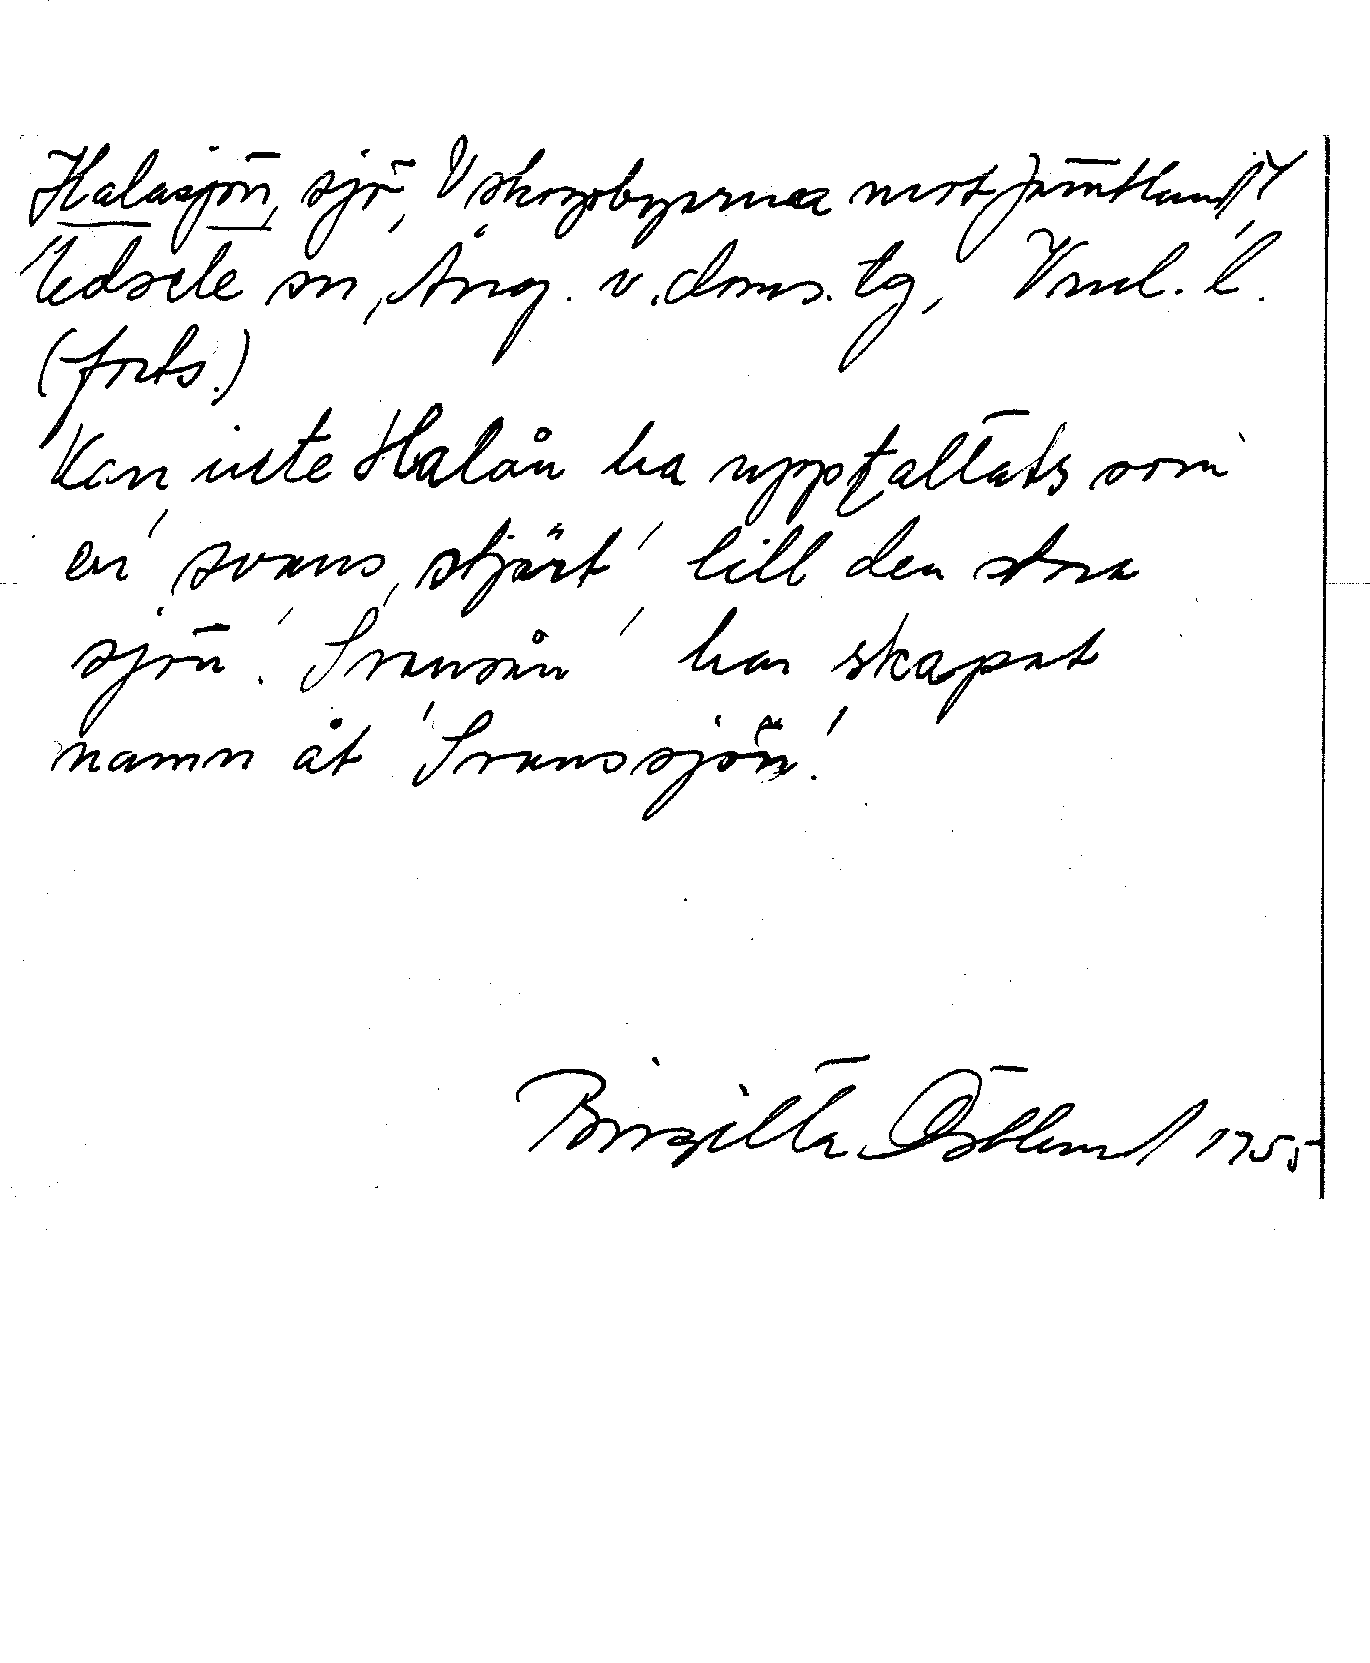 Halasjön, sjö, V skogsbyarna mot Jämtland,
Edsele sn, Ång. v. doms. tg, Vnl. l.
(forts.)
Kan inte Halån ha uppfattats som
en 'svans, stjärt' till den stora
sjön. 'Svansån' har skapat
namn åt 'Svanssjön'.
Birgitta Östlund 1955